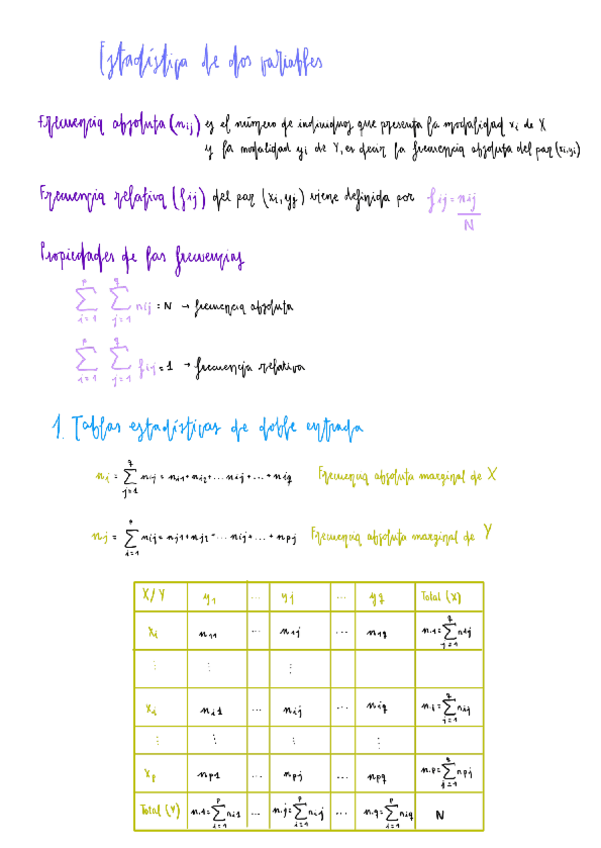 Estadística de dos variables
Frecuencia absoluta (nij) es el número de individuos que presenta la modalidad xi de X
y la modalidad yi de Y, es decir la frecuencia absoluta del par (xi,yi)
Frecuencia relativa (fij) del par (xi,yj) viene definida por fij = nij / N
Propiedades de las frecuencias
p Σ i=1 q Σ j=1 nij = N → frecuencia absoluta
p Σ i=1 q Σ j=1 fij = 1 → frecuencia relativa
1. Tablas estadísticas de doble entrada
ni = q Σ j=1 nij = ni1+ni2+...nij+...+niq Frecuencia absoluta marginal de X
nj = p Σ i=1 nij = nj1+nj2+...nij+...+npj Frecuencia absoluta marginal de Y
X/Y y1 ... yj ... yq Total (X)
xi n11 ... n1j ... n1q n.1= q Σ j=1 n1j
⋮ ⋮ ⋮
xi ni1 ... nij ... niq n.i= q Σ j=1 niq
⋮ ⋮ ⋮ ⋮
xp np1 ... npj ... npq n.p= q Σ j=1 npj
Total (Y) n.1= p Σ i=1 ni1 ... n.j= p Σ i=1 nij ... n.q= p Σ i=1 niq N